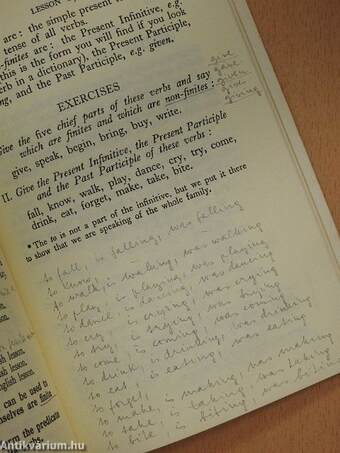 LESSON
are: the simple present
tense of all verbs.
-finites are: the Present Infinitive, e.g.
this is the form you will find if you look
verb in a dictionary), the Present Participle,
ng, and the Past Participle, e.g. given.
EXERCISES
give
gave
given
give
giving
Give the five chief parts of these verbs and say
which are finites and which are non-finites:
give, speak, begin, bring, buy, write.
II. Give the Present Infinitive, the Present Participle
and the Past Participle of these verbs:
fall, know, walk, play, dance, cry, try, come,
drink, eat, forget, make, take, bite.
* The to is not a part of the infinitive, but we put it there
to show that we are speaking of the whole family.
to fall, is falling, was falling
to know,
to walk, is walking, was walking
to play, is playing, was playing
to dance, is dancing, was dancing
to cry, is crying, was crying
to try, is trying, was trying
to come, is coming, was coming
to drink, is drinking, was drinking
to eat, is eating, was eating
to forget,
to make, is making, was making
to take, is taking, was taking
to bite, is biting, was biting
lesson.
lesson.
English lesson.
can be used to
ourselves are finite
the predicate
verbs.
Antikvárium.hu